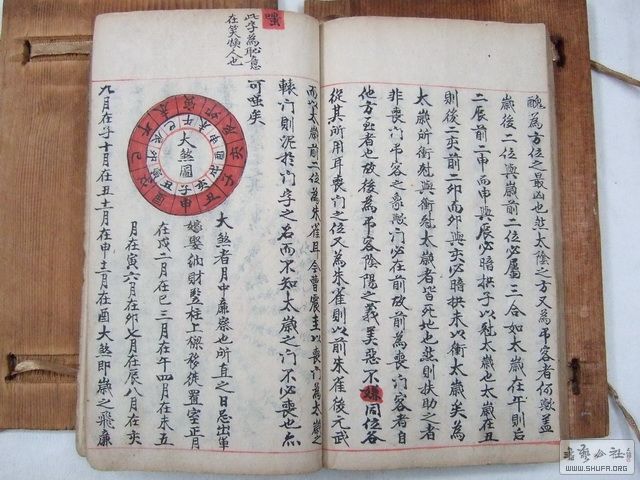 醜為方位之最凶也然太陰之方又為弔客者何歟蓋
歲後二位與歲前二位必屬三合如太歲在午則后
二辰前二申而申與辰必暗拱子以對太歲也太歲在丑
則後二亥前二卯而卯與亥必暗拱未以衝太歲矣為
太歲所衝對與衝對太歲者皆死地也然則扶助之者
非喪門弔客之象歟門必在前故前為喪門客者自
他方至者也故後為弔客陰陽之義美惡不嫌同位各
從其所用耳喪門之位又為朱雀則以前朱雀後元武
嗤
此字為恥意
在笑人也
而以太歲前二位為朱雀且今曹震圭以喪門為太歲之
轅門則泥於門字之名而不知太歲之門不必喪也亦
可嗤矣
大煞圖
大煞者月中廉察也所直之日忌出軍
嫁娶納財豎柱上樑移徙置室正月
在戌二月在巳三月在午四月在未五
月在寅六月在卯七月在辰八月在亥
九月在子十月在丑十一月在申十二月在酉大煞即歲之飛廉
WWW.SHUFA.ORG